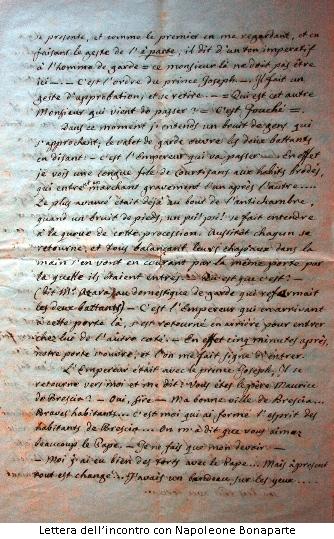 se presente, et comme le premier en me regardant, et en
faisant le geste de l'à parte, il dit d'un ton imperatif
à l'homme de garde = ce monsieur là ne doit pas être
ici — — C'est l'ordre du prince Joseph — Il fait un
geste d'approbation, et se retire. — — Qui est cet autre
Monsieur qui vient de passer? — C'est Fouché =.
Dans ce moment j'entends un bruit de gens qui
s'approchent; le valet de garde ouvre les deux battants
en disant — c'est l'Empereur qui va passer — En effet
je vois une longue file de Courtisans aux habits brodés
qui entre en marchant gravement l'un après l'autre....
Le plus avancé était déjà au bout de l'antichambre,
quand un bruit de pieds, un psi! psi! se fait entendre
à la queue de cette procession. Aussitôt chacun se
retourne, et tous balançant leurs chapeaux dans la
main s'en vont en courant par la même porte par
la quelle ils étaient entrés. — Qu'est que c'est?—
(dit Mr. au domestique de garde qui refermait
les deux battants) — C'est l'Empereur qui en arrivant
à cette porte là, s'est retourné en arrière pour entrer
chez lui de l'autre coté. — En effet cinq minutes après,
notre porte s'ouvre, et l'on me fait signe d'entrer.
L'Empereur était avec le prince Joseph, Il se
retourne vers moi et me dit: Vous êtes le père Maurice
de Brescia? — Oui, Sire — Ma bonne ville de Brescia...
Braves habitants... c'est moi qui ai formé l'esprit des
habitants de Brescia... On m'a dit que vous aimez
beaucoup le Pape. — Je ne fais que mon devoir —
— Moi j'ai eu bien des torts avec le Pape... Mais à présent
tout est changé... J'avais un bandeau sur les yeux....
Lettera dell'incontro con Napoleone Bonaparte